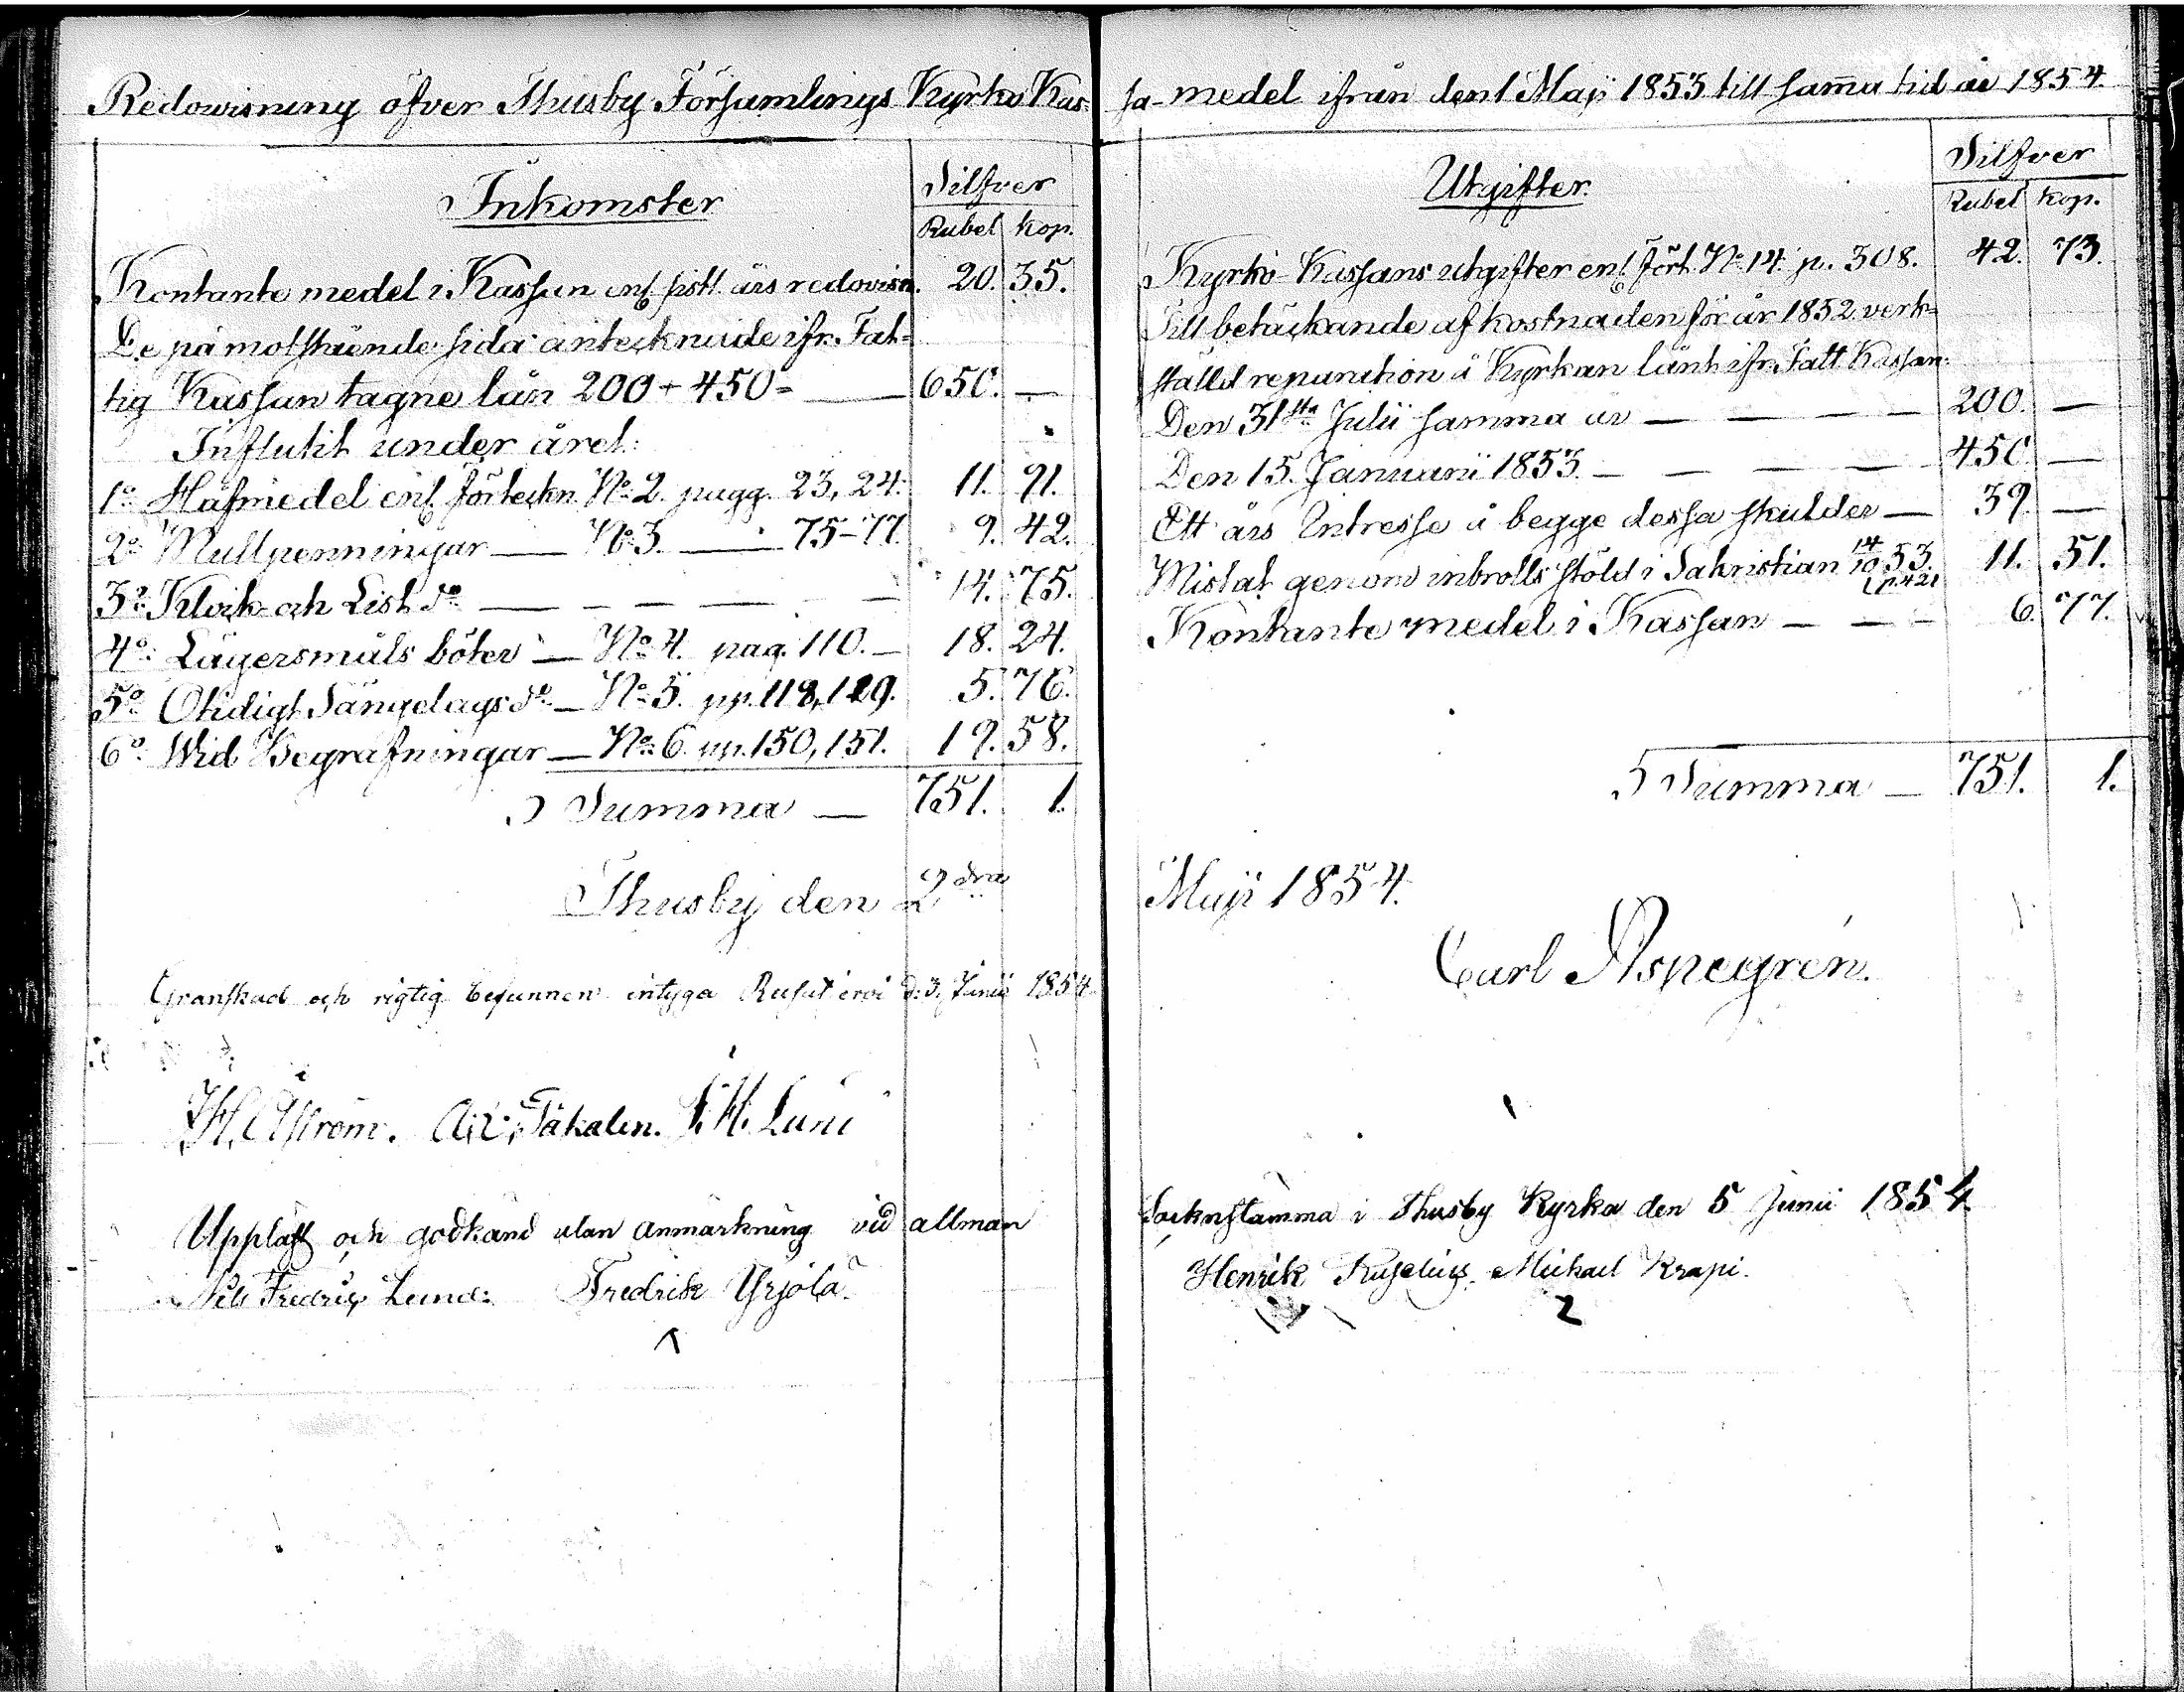 Redovisning öfver Thusby Församlings Kyrko Kas=
Inkomster
Silfver
Rubel kop.
Kontante medel i Kassan enl. sistl. års redovisn. 20. 35.
De på motstående sida antecknade ifr. Fat=
tig Kassan tagne lån 200 + 450 = — 650. —
Influtit under året:
1o Håfmedel enl. förteckn. No 2. pagg. 23, 24. 11. 91.
2o Mullpenningar — No 3. — 75-77. 9. 42.
3o Klock- och List do — — — — 14. 75.
4o Lägersmåls böter — No 4. pag. 110. — 18. 24.
5o Otidigt Sängelags do — No 5. pp. 118, 119. 5. 76.
6o Wid Begrafningar — No 6. pp. 150, 151. 19. 58.
Summa — 751. 1.
Thusby den 2dra
Granskad och rigtig befunnen intyga Rusutjervi d. 3. Junii 1854
H. Åström. Täkalen. F. H. Lund
Uppläst och godkänd utan anmärkning vid allmän
Nils Fredrik Lund. Fredrik Yrjölä.
sa-medel ifrån den 1 Maji 1853 till samma tid år 1854.
Utgifter.
Silfver
Rubel kop.
Kyrko-Kassans utgifter enl. Fört. No 14. p. 308. 42. 73.
Till betäckande af kostnaden för år 1852 verk=
ställd reparation å Kyrkan lånt ifr. Fatt. Kassan:
Den 31sta Julii samma år — — — — 200. —
Den 15. Januarii 1853. — — — — 450 —
Ett års Intresse å begge dessa skulder — 39. —
Mistat genom inbrotts stöld i Sakristian 14/10 53. 11. 51.
Kontante medel i Kassan — — — 6. 77.
Summa — 751. 1.
Maji 1854.
Carl Aspegrén.
Socknstämma i Thusby Kyrka den 5 Junii 1854
Henrik Michael Krapi.